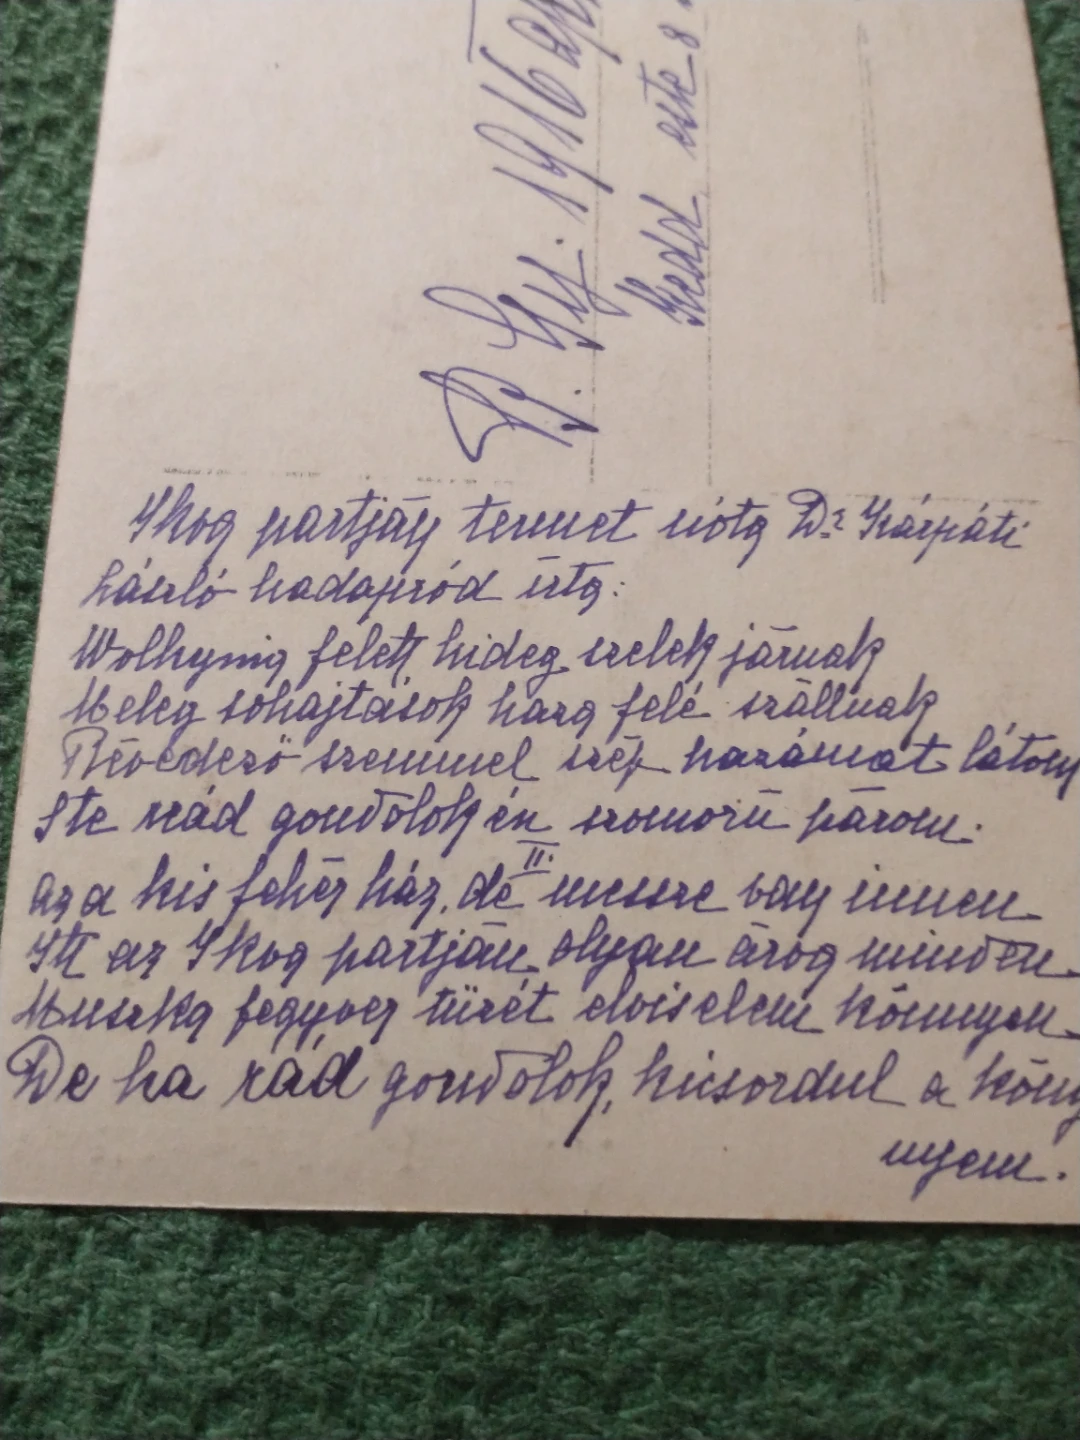 P. Gy. 1916 ápr
Kedd, este 8
Ikva partján termet nóta Dr. Kárpáti
László hadapród írta:
Wolhynia felett hideg szelek járnak
Meleg sohajtások haza felé szállnak
Révedező szemmel szép hazámat látom
Ste reád gondolok én szomorú párom.
II.
Az a kis fehér ház, de messze vagy innen
Itt az Ikva partján olyan árva minden.
Muszka fegyver tüzét elviselem könnyen.
De ha rád gondolok, kicsordul a köny
nyem.